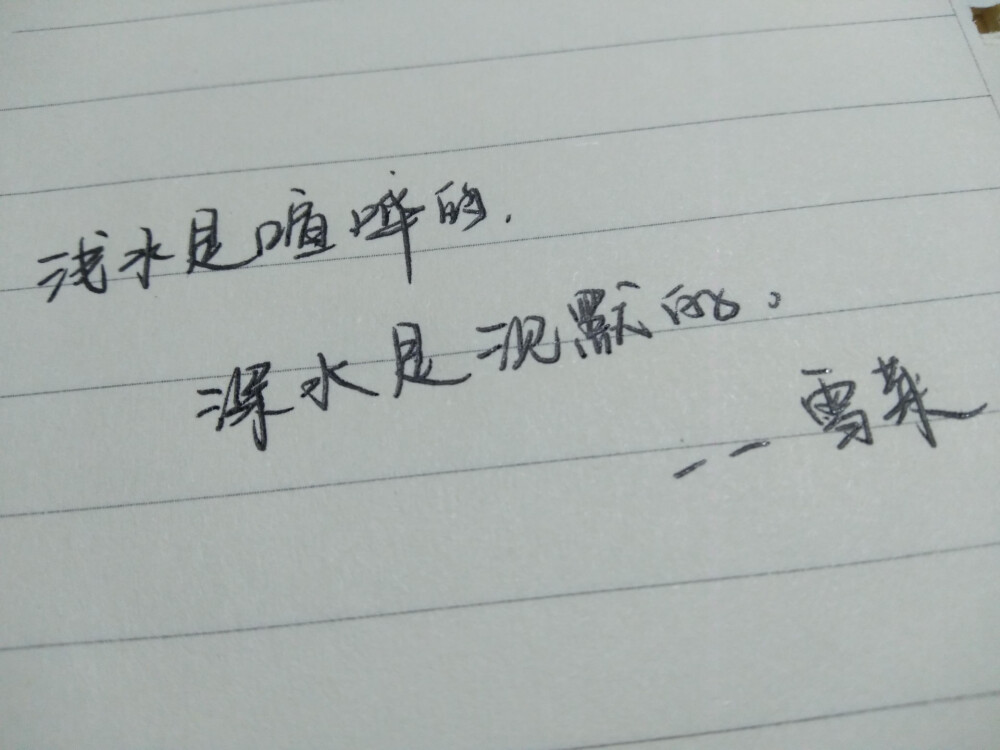 浅水是喧哗的.
深水是沉默的。
——雪莱